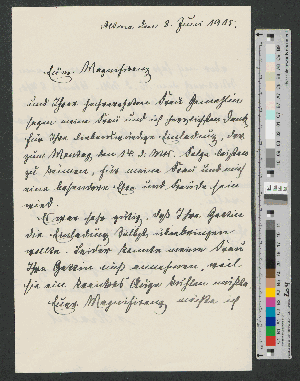 Altona, den 8. Juni 1915.
Euer Magnifizenz
und Ihrer hochverehrten Frau Gemahlin
sagen meine Frau und ich herzlichsten Dank
für Ihre liebenswürdige Einladung, der
zum Montag, den 14. d. Mts. Folge leisten
zu können, für meine Frau und mich
eine besondere Ehre und Freude sein
wird.
Es war sehr gütig, daß Ihre Gattin
die Einladung selbst überbringen
wollte. Leider konnte meine Frau
Ihre Gattin nicht annehmen, weil
sie ein krankes Auge kühlen mußte.
Euer Magnifizenz möchte ich